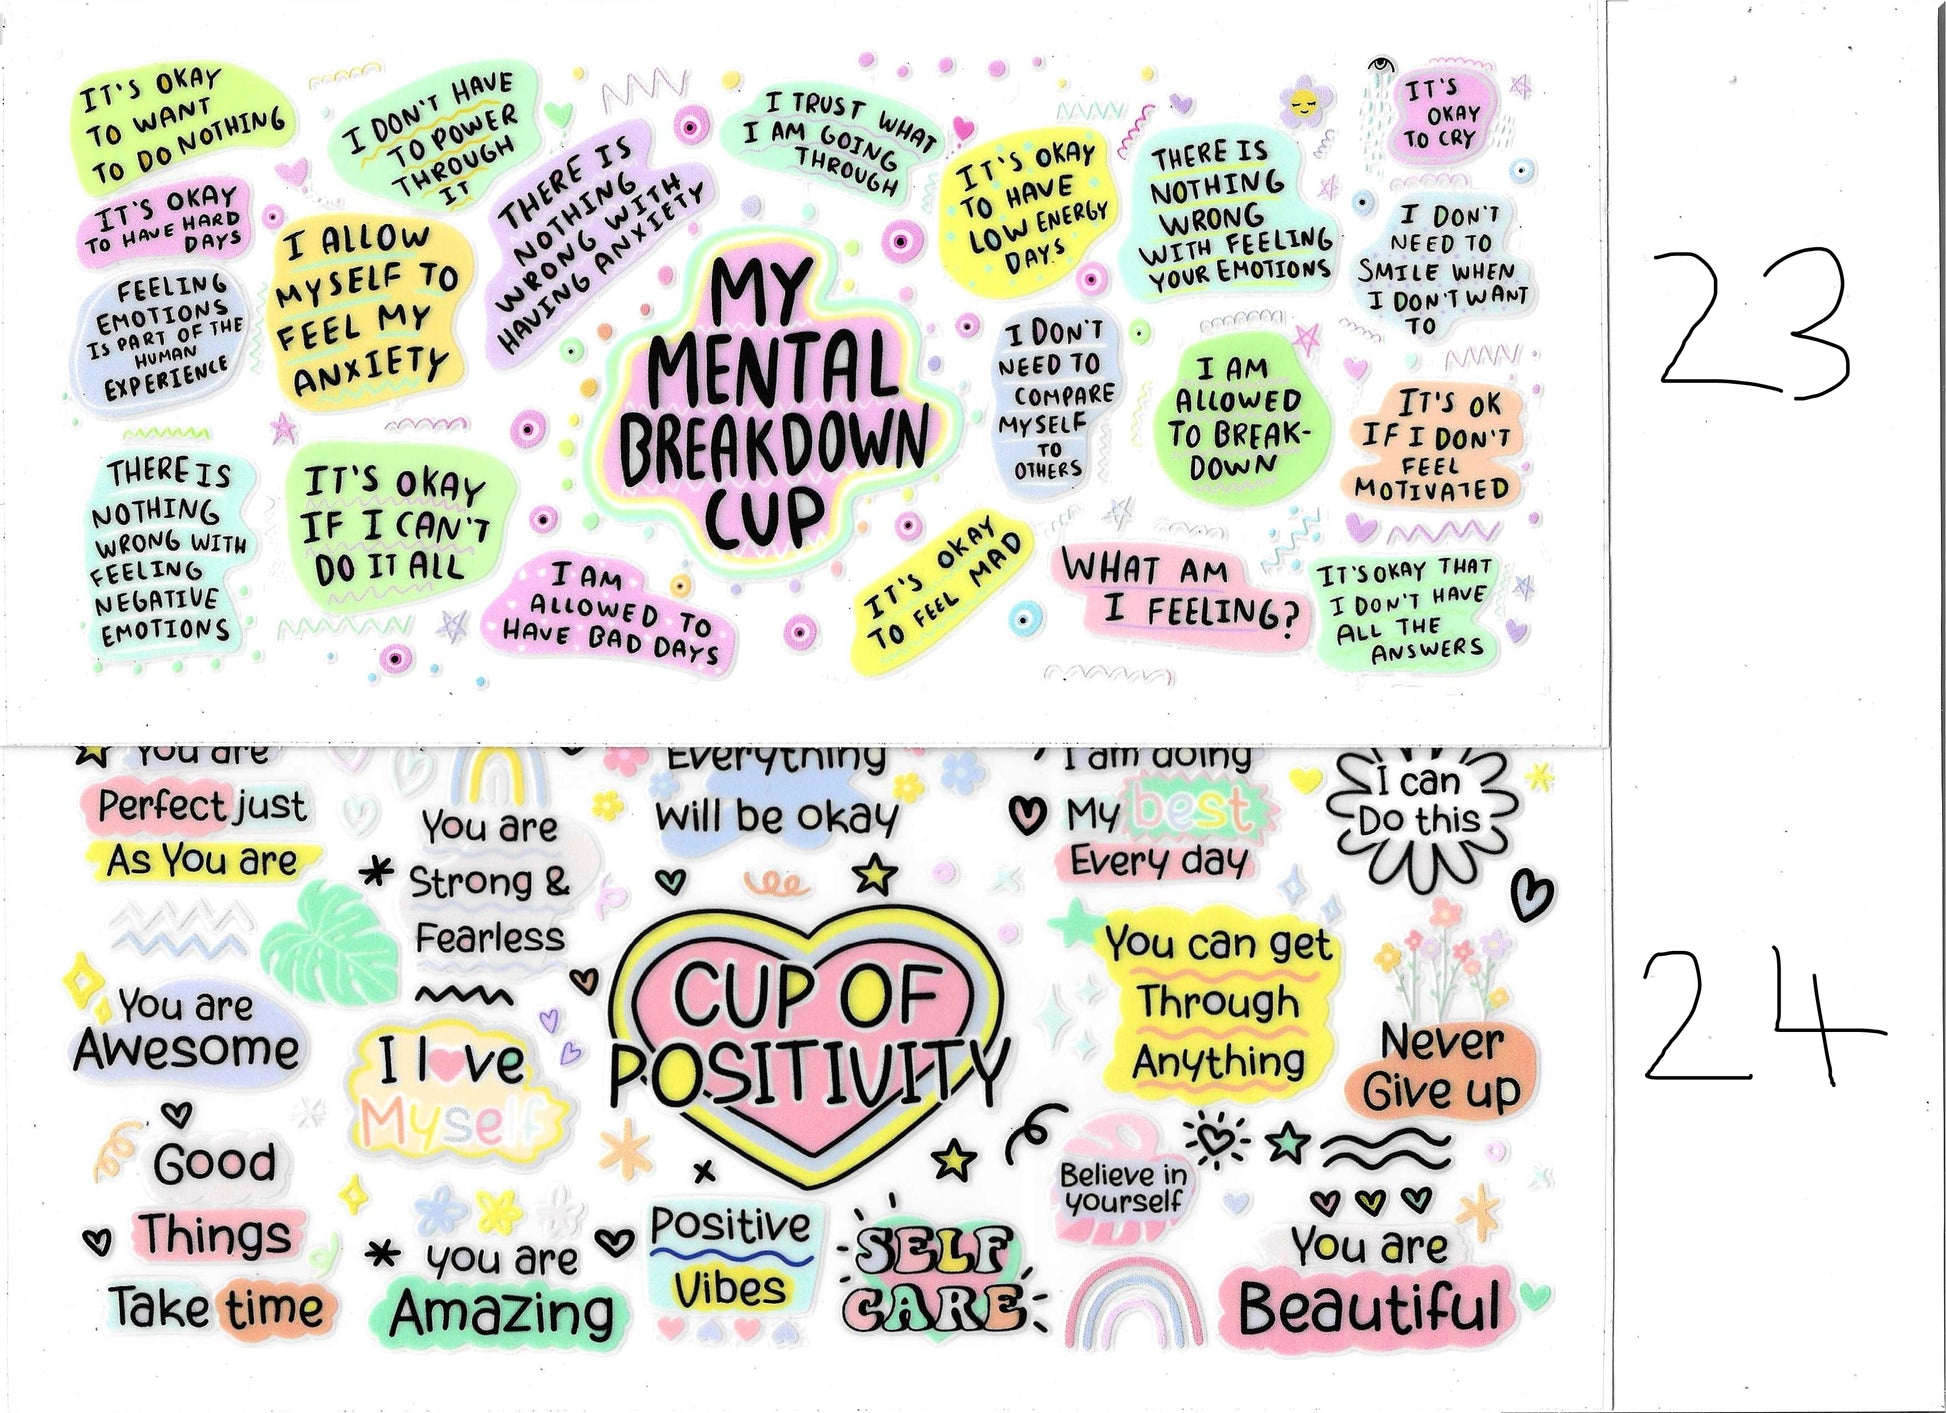 IT'S OKAY
TO WANT
TO DO NOTHING
I DON'T HAVE
TO POWER
THROUGH
IT
THERE IS
NOTHING
WRONG WITH
HAVING ANXIETY
I TRUST WHAT
I AM GOING
THROUGH
IT'S OKAY
TO HAVE
LOW ENERGY
DAYS
THERE IS
NOTHING
WRONG
WITH FEELING
YOUR EMOTIONS
IT'S
OKAY
TO CRY
IT'S OKAY
TO HAVE HARD
DAYS
I ALLOW
MYSELF TO
FEEL MY
ANXIETY
FEELING
EMOTIONS
IS PART OF THE
HUMAN
EXPERIENCE
MY
MENTAL
BREAKDOWN
CUP
I DON'T
NEED TO
COMPARE
MYSELF
TO
OTHERS
I AM
ALLOWED
TO BREAK-
DOWN
I DON'T
NEED TO
SMILE WHEN
I DON'T WANT
TO
IT'S OK
IF I DON'T
FEEL
MOTIVATED
THERE IS
NOTHING
WRONG WITH
FEELING
NEGATIVE
EMOTIONS
IT'S OKAY
IF I CAN'T
DO IT ALL
I AM
ALLOWED TO
HAVE BAD DAYS
IT'S OKAY
TO FEEL MAD
WHAT AM
I FEELING?
IT'S OKAY THAT
I DON'T HAVE
ALL THE
ANSWERS
23
You are
Perfect just
As You are
You are
Strong &
Fearless
Everything
Will be okay
I am doing
My best
Every day
I can
Do this
You are
Awesome
I love
Myself
CUP OF
POSITIVITY
You can get
Through
Anything
Never
Give up
Good
Things
Take time
you are
Amazing
Positive
Vibes
SELF
CARE
Believe in
yourself
You are
Beautiful
24